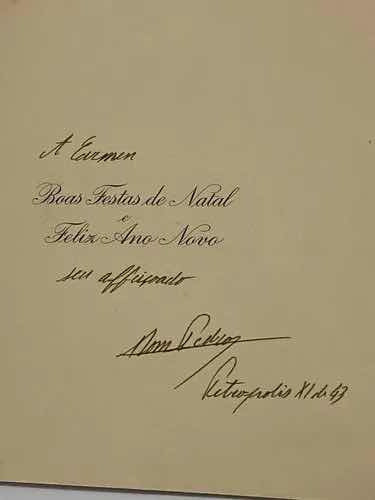 A Carmen
Boas Festas de Natal
e
Feliz Ano Novo
seu affeiçoado
Dom Pedro
Petropolis XI de 43